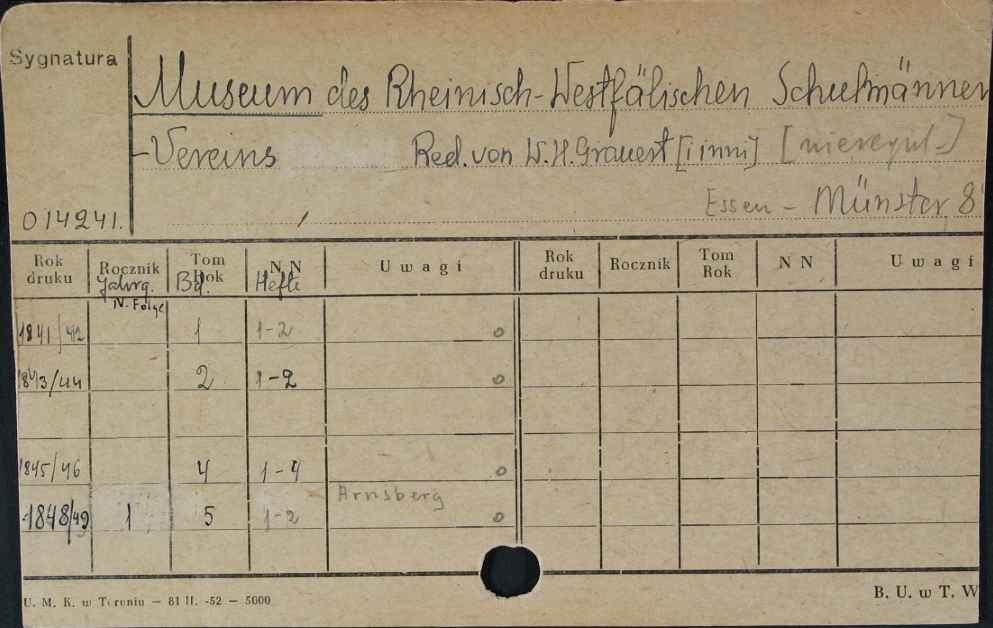 Sygnatura
Museum des Rheinisch-Westfälischen Schulmänner
-Vereins Red. von W. H. Grauert [i inni] [nieregul.]
Essen - Münster 8
014241.
Rok druku Rocznik Tom Rok N N Uwagi Rok druku Rocznik Tom Rok N N Uwagi
Jahrg. Bd. Hefte
N. Folge
1841/42 1 1-2 o
1843/44 2 1-2 o
1845/46 4 1-4 o
Arnsberg
1848/49 1 5 1-2 o
U. M. K. w Toruniu — 81 II. -52 — 5000
B. U. w T. W